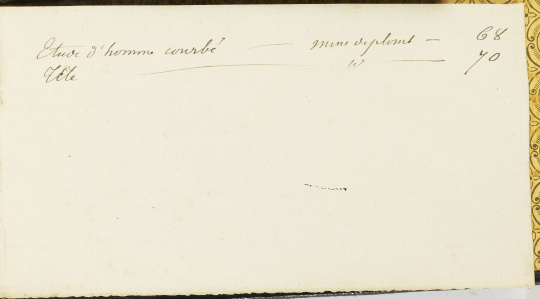 Etude d'homme courbé — mine deplomb — 68
Tête — id — 70